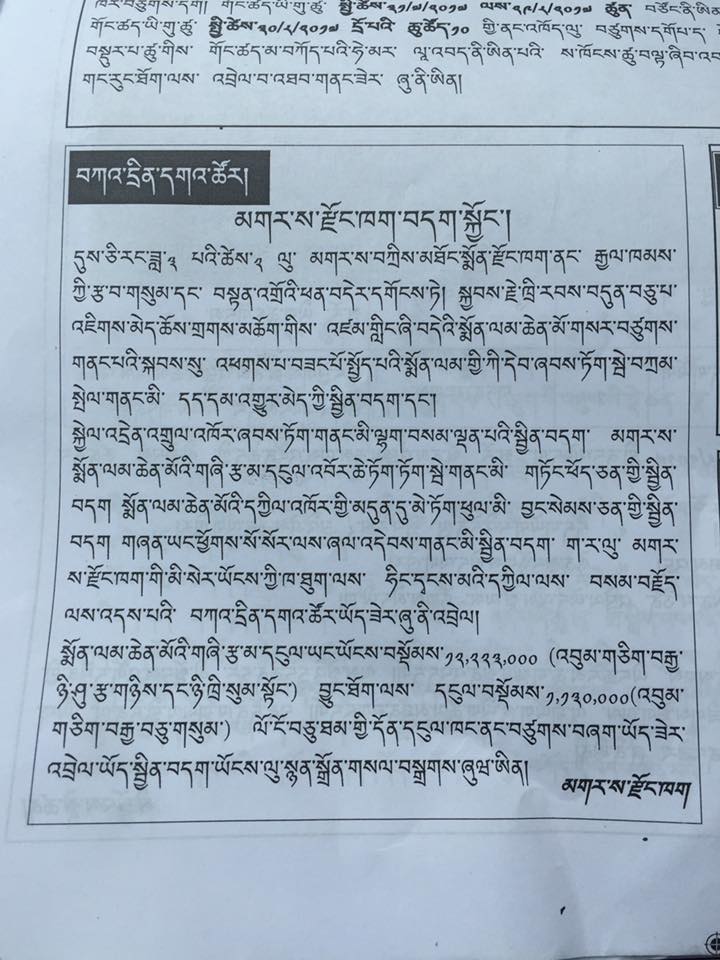 གོང་ཚད་ཡི་གུ་ཚུ་ སྤྱི་ཚེས་༢༡/༧/༢༠༡༧ ལས་༢༩/༨/༢༠༡༧ ཚུན་ བཙོང་ནི་ཨིན
གོང་ཚད་ཡི་གུ་ཚུ་ སྤྱི་ཚེས་༣༠/༨/༢༠༡༧ དྲོ་པའི་ ཆུ་ཚོད་༡༠ ཀྱི་ནང་འཁོད་ལུ་ བཙུགས་དགོཔ་ད་
བསྡུར་པ་ཚུ་གིས་ གོང་ཚད་མ་བཀོད་པའི་ཧེ་མར་ ལཱ་འབད་ནི་ཨིན་པའི་ ས་ཁོངས་ཚུ་བལྟ་ཞིབ་འབ
གང་རུང་ཐོག་ལས་ འབྲེལ་བ་འཐབ་གནང་ཟེར་ ཞུ་ནི་ཨིན།
བཀའ་དྲིན་དགའ་ཚོར།
མགར་ས་རྫོང་ཁག་བདག་སྐྱོང་།
དུས་ཅི་རང་ཟླ་༣ པའི་ཚེས་༢ ལུ་ མགར་ས་བཀྲིས་མཐོང་སྨོན་རྫོང་ཁག་ནང་ རྒྱལ་ཁམས་
ཀྱི་རྩ་བ་གསུམ་དང་ བསྟན་འགྲོའི་ཕན་བདེར་དགོངས་ཏེ། སྐྱབས་རྗེ་ཁྲི་རབས་བདུན་བཅུ་པ་
འཇིགས་མེད་ཆོས་གྲགས་མཆོག་གིས་ འཛམ་གླིང་ཞི་བདེའི་སྨོན་ལམ་ཆེན་མོ་གསར་བཙུགས་
གནང་པའི་སྐབས་སུ་ འཕགས་པ་བཟང་པོ་སྤྱོད་པའི་སྨོན་ལམ་གྱི་ཀི་དེབ་ཞབས་ཏོག་སྦེ་བཀྲམ་
སྤེལ་གནང་མི་ དད་དམ་འགྱུར་མེད་ཀྱི་སྦྱིན་བདག་དང་།
སྐྱེལ་འདྲེན་འགྲུལ་འཁོར་ཞབས་ཏོག་གནང་མི་ལྷག་བསམ་ལྡན་པའི་སྦྱིན་བདག་ མགར་ས་
སྨོན་ལམ་ཆེན་མོའི་གཞི་རྩ་མ་དངུལ་འབོར་ཆེ་ཏོག་ཏོག་སྦེ་གནང་མི་ གཏོང་ཕོད་ཅན་གྱི་སྦྱིན་
བདག སྨོན་ལམ་ཆེན་མོའི་དཀྱིལ་འཁོར་གྱི་མདུན་དུ་མེ་ཏོག་ཕུལ་མི་ བྱང་སེམས་ཅན་གྱི་སྦྱིན་
བདག གཞན་ཡང་ཕྱོགས་སོ་སོར་ལས་ཞལ་འདེབས་གནང་མི་སྦྱིན་བདག་ ག་ར་ལུ་ མགར་
ས་རྫོང་ཁག་གི་མི་སེར་ཡོངས་ཀྱི་ཁ་ཐུག་ལས་ ཧིང་དྭངས་མའི་དཀྱིལ་ལས་ བསམ་བརྗོད་
ལས་འདས་པའི་ བཀའ་དྲིན་དགའ་ཚོར་ཡོད་ཟེར་ཞུ་ནི་འབྲེལ།
སྨོན་ལམ་ཆེན་མོའི་གཞི་རྩ་མ་དངུལ་ཡང་ཡོངས་བསྡོམས་༡༢,༢༢༣,༠༠༠ (འབུམ་གཅིག་བརྒྱ་
ཉི་ཤུ་རྩ་གཉིས་དང་ཉི་ཁྲི་སུམ་སྟོང་) བྱུང་ཐོག་ལས་ དངུལ་བསྡོམས་༡,༡༣༠,༠༠༠(འབུམ་
གཅིག་བརྒྱ་བཅུ་གསུམ་) ལོ་ངོ་བཅུ་ཐམ་གྱི་དོན་དངུལ་ཁང་ནང་བཙུགས་བཞག་ཡོད་ཟེར་
འབྲེལ་ཡོད་སྦྱིན་བདག་ཡོངས་ལུ་སྙན་སྒྲོན་གསལ་བསྒྲགས་ཞུཝ་ཨིན།
མགར་ས་རྫོང་ཁག